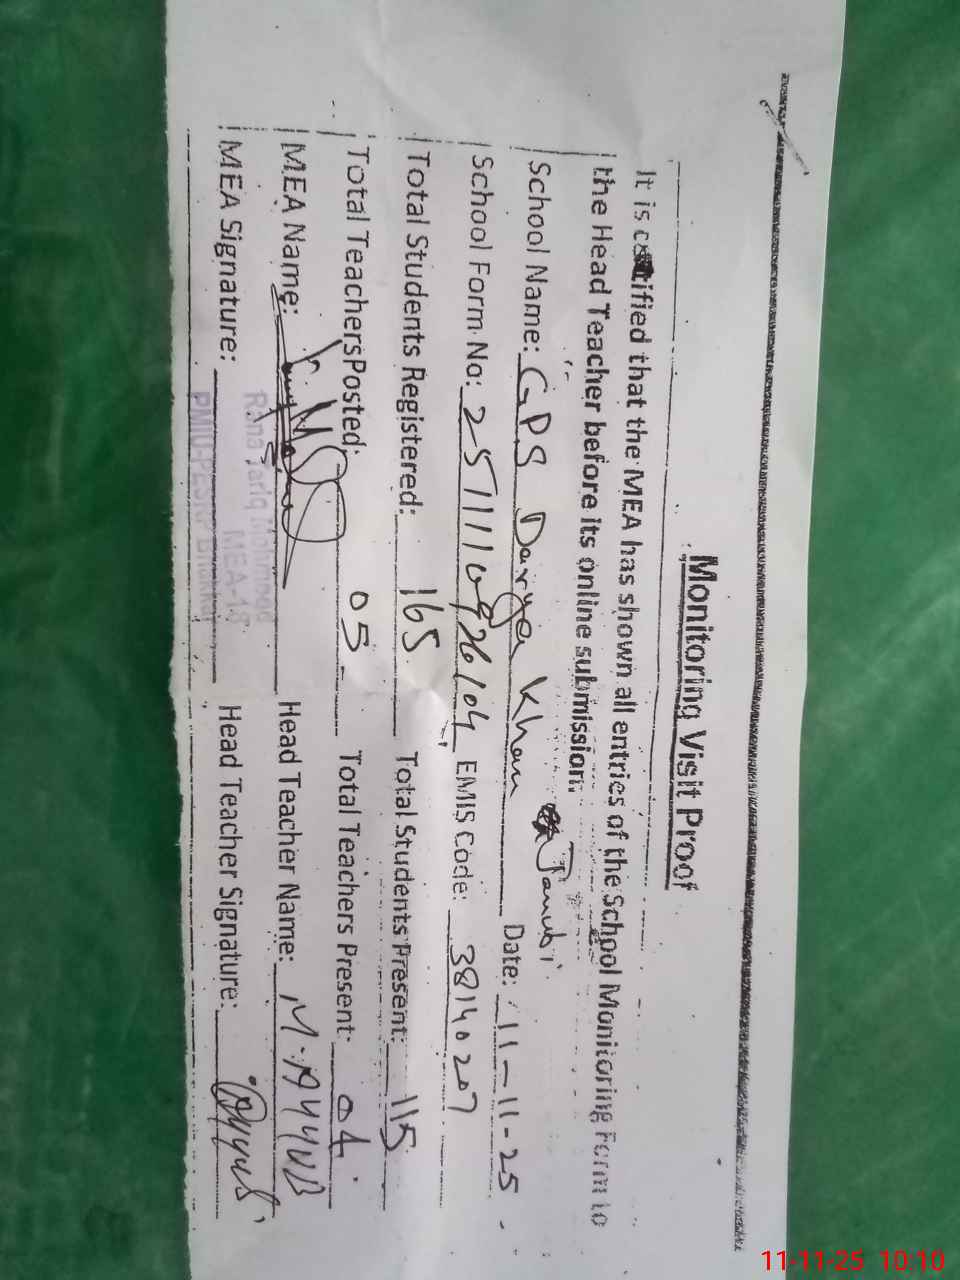 Monitoring Visit Proof
It is certified that the MEA has shown all entries of the School Monitoring Form to
the Head Teacher before its online submission.
School Name: GPS Darya Khan Janubi Date: 11-11-25
School Form No: EMIS Code: 38140207
Total Students Registered: 165 Total Students Present: 115
Total Teachers Posted: 05 Total Teachers Present: 04
MEA Name: Head Teacher Name: M. AYYUB
MEA Signature: Head Teacher Signature: Ayyub
Rana Tariq Mehmood
MEA-18
PMIU-PESRP Bhakkar
11-11-25 10:10